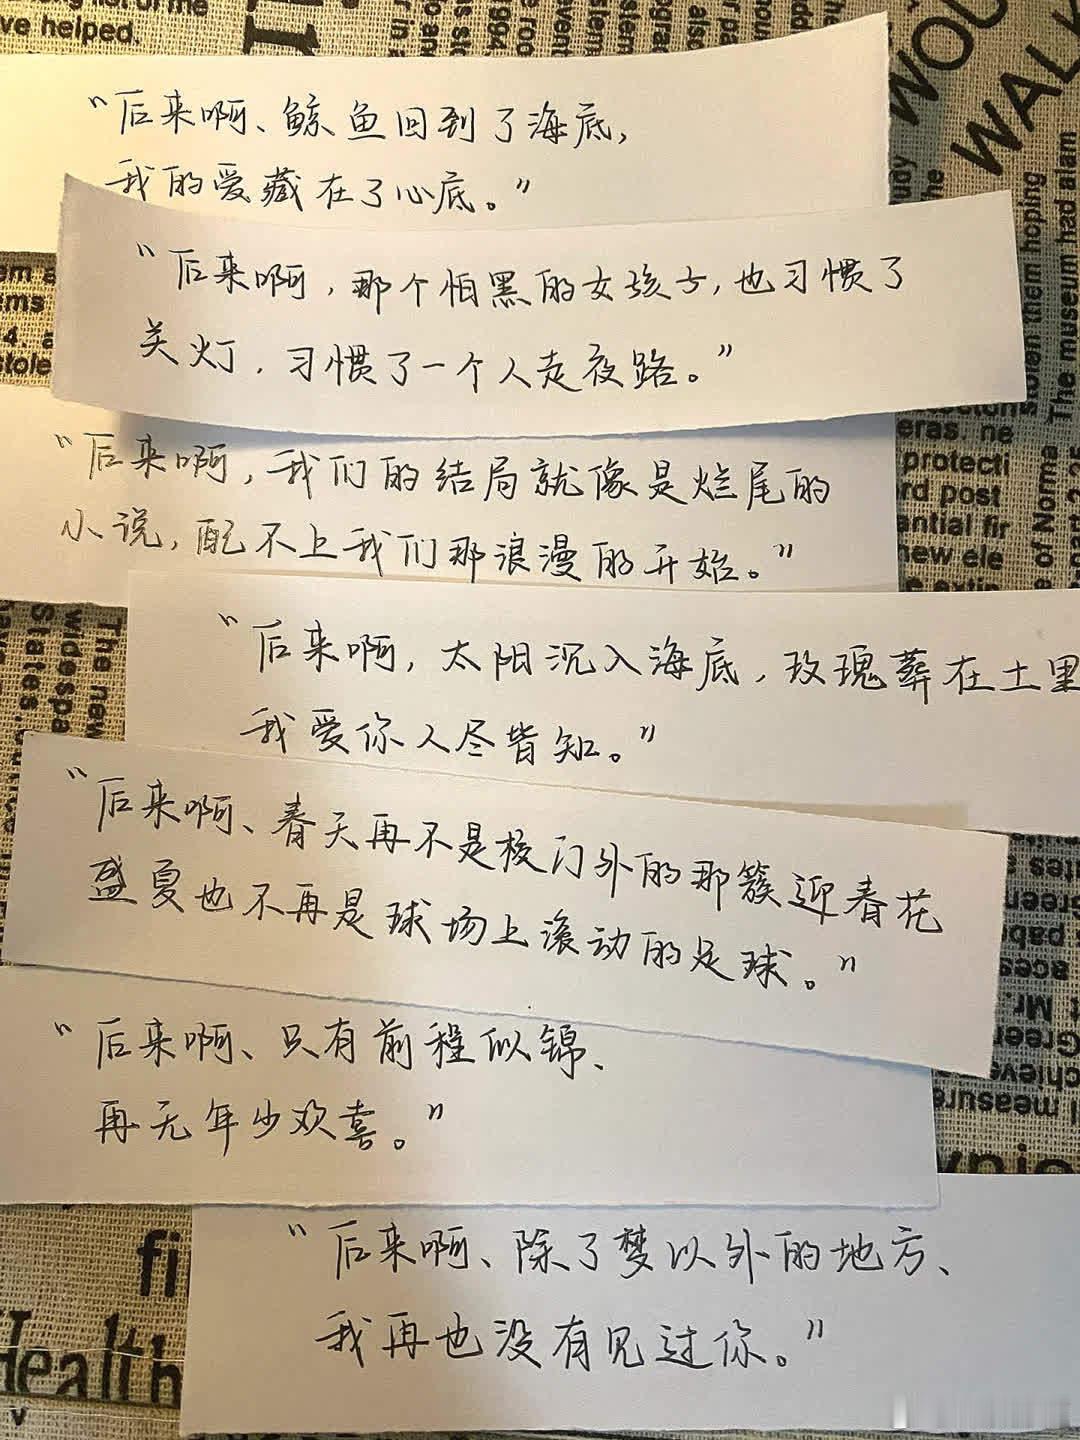 “后来啊、鲸鱼回到了海底,
我的爱藏在了心底。”
“后来啊,那个怕黑的女孩子,也习惯了
关灯,习惯了一个人走夜路。”
“后来啊,我们的结局就像是烂尾的
小说,配不上我们那浪漫的开始。”
“后来啊,太阳沉入海底,玫瑰葬在土里
我爱你人尽皆知。”
“后来啊、春天再不是校门外的那簇迎春花
盛夏也不再是球场上滚动的足球。”
“后来啊、只有前程似锦、
再无年少欢喜。”
“后来啊、除了梦以外的地方、
我再也没有见过你。”
ve helped.
WALK
The museum had alarm
stolen them hoping
e of Norma
eras. ne
protecti
rd post
antial fir
new ele
The new
widespa
States.
fi
Health